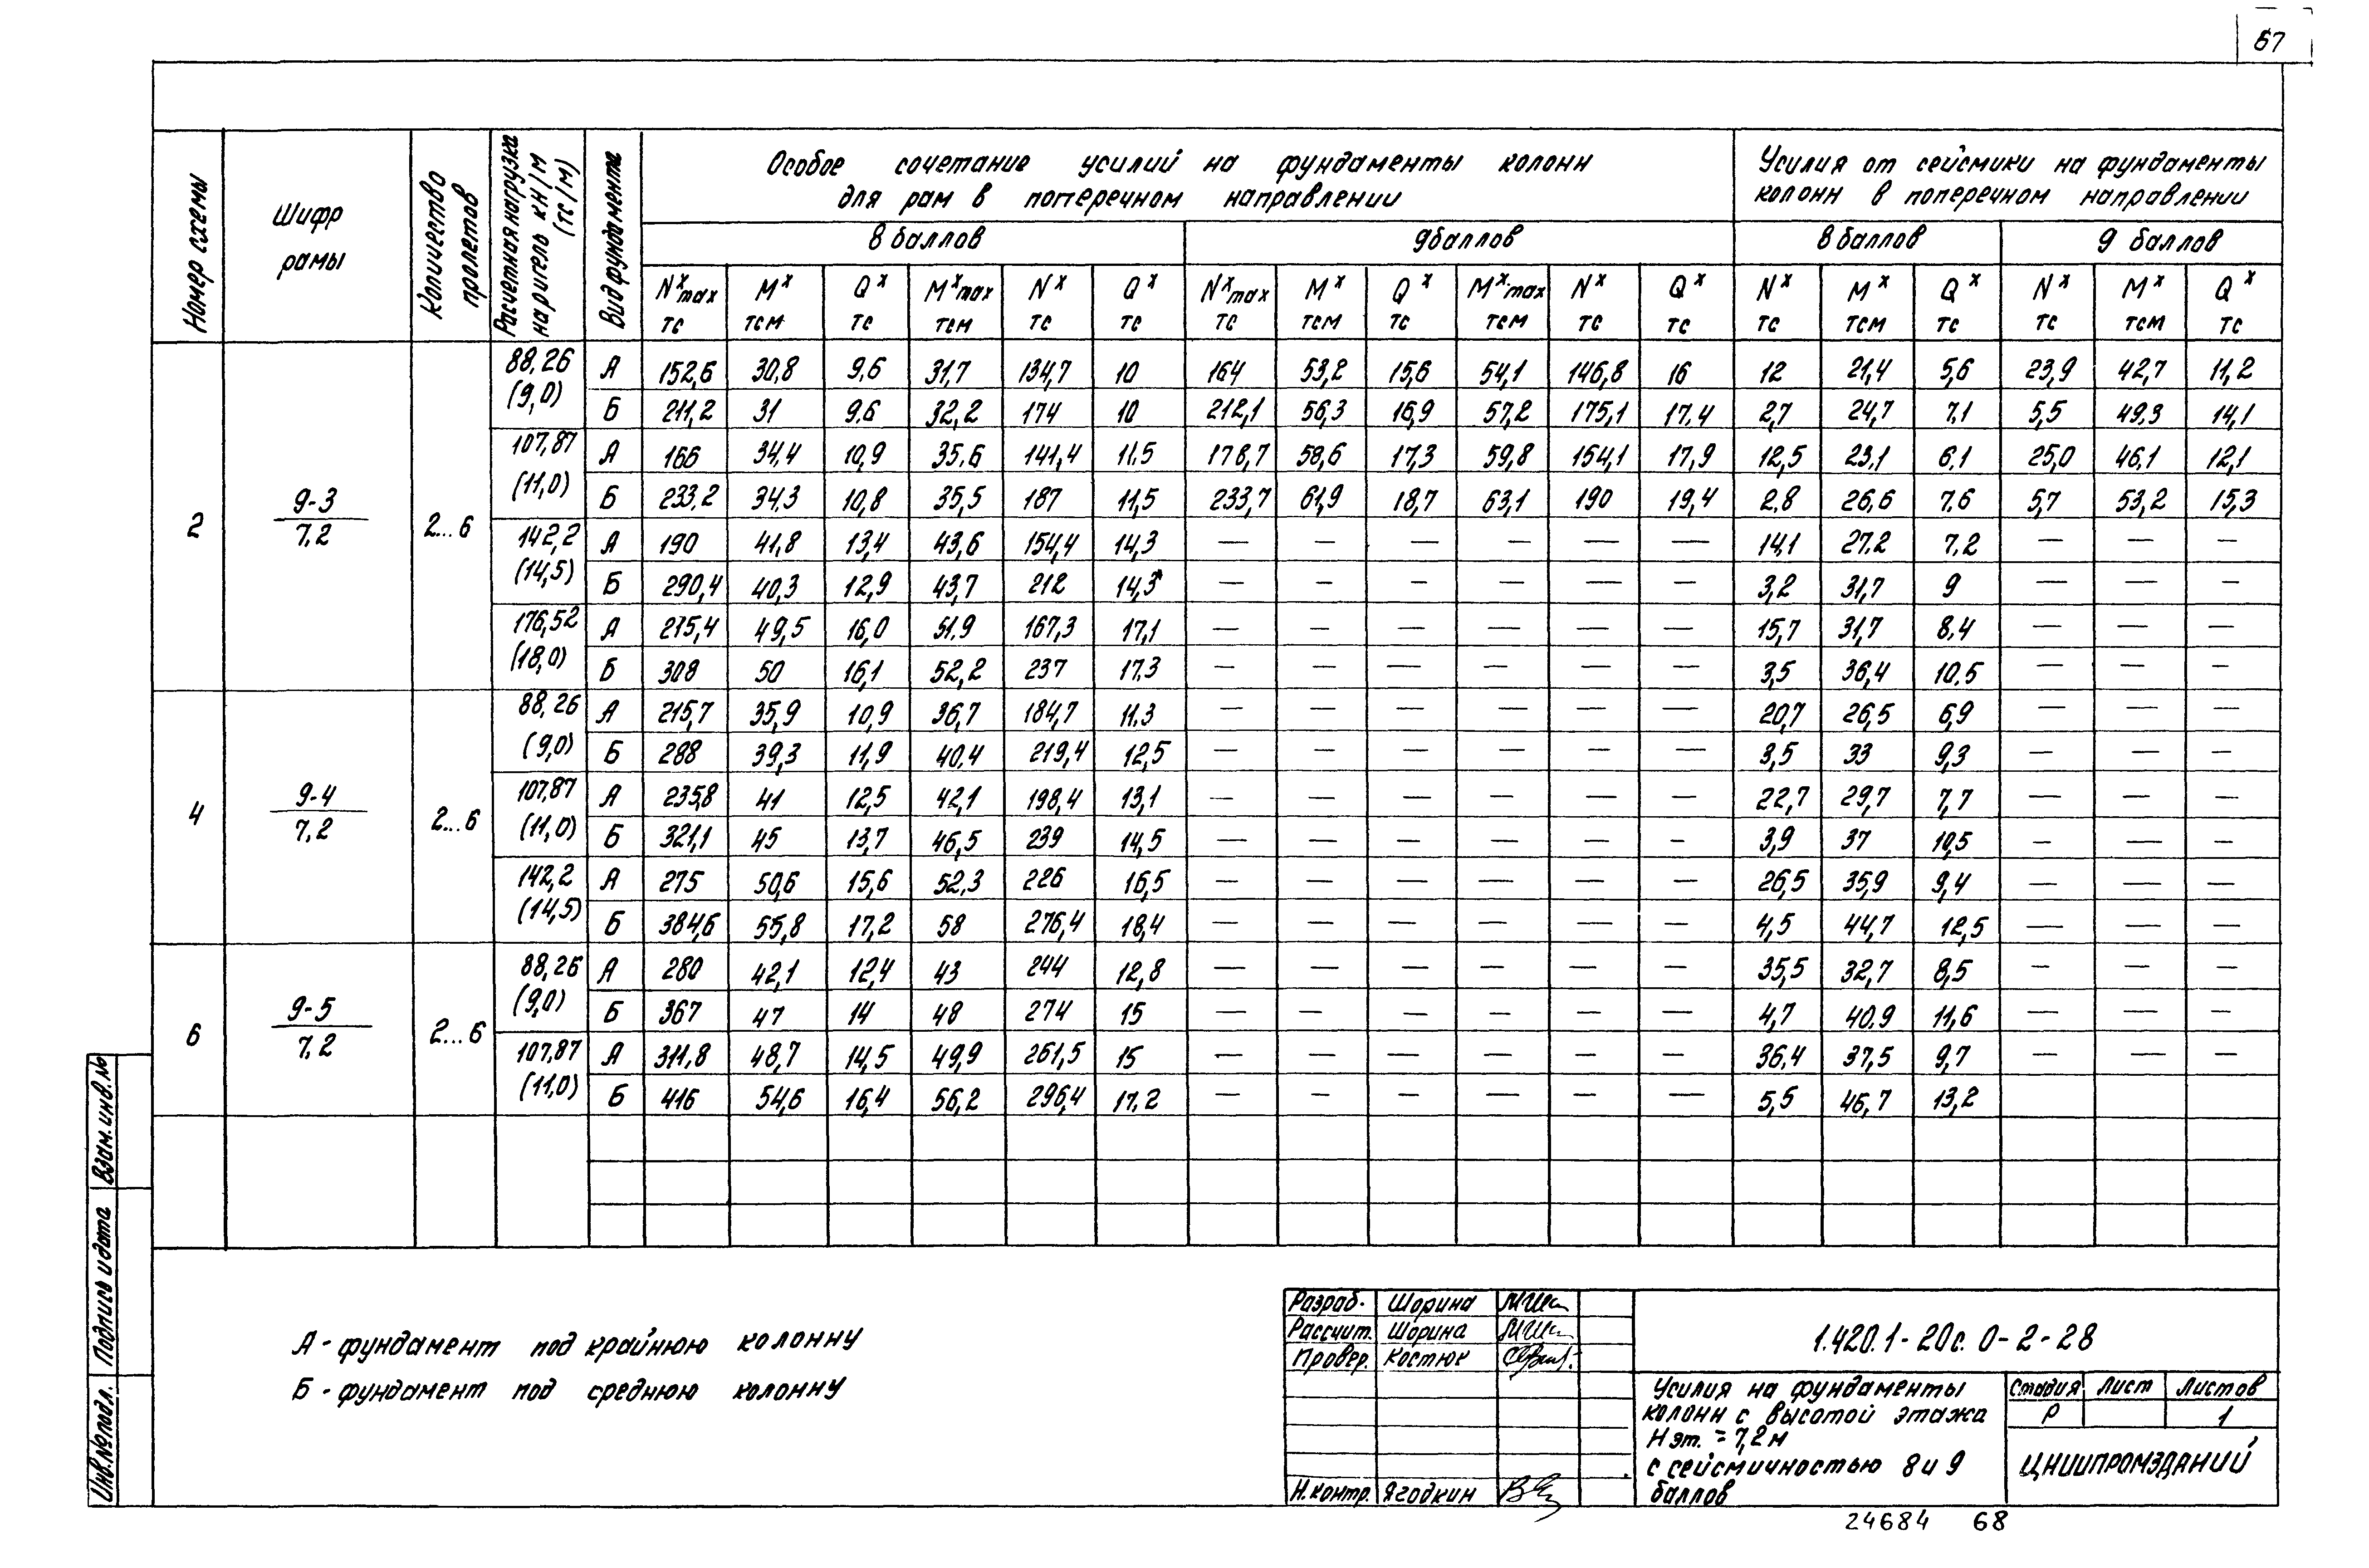 67
Номер схемы
Шифр рамы
Количество пролетов
Расчетная нагрузка на ригель кН/м (тс/м)
Вид фундамента
Особое сочетание усилий на фундаменты колонн
для рам в поперечном направлении
Усилия от сейсмики на фундаменты
колонн в поперечном направлении
8 баллов 9 баллов 8 баллов 9 баллов
Nˣmax Mˣ Qˣ Mˣmax Nˣ Qˣ Nˣmax Mˣ Qˣ Mˣmax Nˣ Qˣ Nˣ Mˣ Qˣ Nˣ Mˣ Qˣ
тс тсм тс тсм тс тс тс тсм тс тсм тс тс тс тсм тс тс тсм тс
2 9-3/7,2 2...6
88,26 (9,0) А 152,6 30,8 9,6 31,7 134,7 10 164 53,2 15,6 54,1 146,8 16 12 21,4 5,6 23,9 42,7 11,2
Б 211,2 31 9,6 32,2 174 10 212,1 56,3 16,9 57,2 175,1 17,4 2,7 24,7 7,1 5,5 49,3 14,1
107,87 (11,0) А 166 34,4 10,9 35,6 141,4 11,5 178,7 58,6 17,3 59,8 154,1 17,9 12,5 23,1 6,1 25,0 46,1 12,1
Б 233,2 34,3 10,8 35,5 187 11,5 233,7 61,9 18,7 63,1 190 19,4 2,8 26,6 7,6 5,7 53,2 15,3
142,2 (14,5) А 190 41,8 13,4 43,6 154,4 14,3 — — — — — — 14,1 27,2 7,2 — — —
Б 290,4 40,3 12,9 43,7 212 14,3 — — — — — — 3,2 31,7 9 — — —
176,52 (18,0) А 275,4 49,5 16,0 51,9 167,3 17,1 — — — — — — 15,7 31,7 8,4 — — —
Б 308 50 16,1 52,2 237 17,3 — — — — — — 3,5 36,4 10,5 — — —
4 9-4/7,2 2...6
88,26 (9,0) А 215,7 35,9 10,9 36,7 184,7 11,3 — — — — — — 20,7 26,5 6,9 — — —
Б 288 39,3 11,9 40,4 219,4 12,5 — — — — — — 3,5 33 9,3 — — —
107,87 (11,0) А 235,8 41 12,5 42,1 198,4 13,1 — — — — — — 22,7 29,7 7,7 — — —
Б 321,1 45 13,7 46,5 239 14,5 — — — — — — 3,9 37 10,5 — — —
142,2 (14,5) А 275 50,6 15,6 52,3 226 16,5 — — — — — — 26,5 35,9 9,4 — — —
Б 384,6 55,8 17,2 58 276,4 18,4 — — — — — — 4,5 44,7 12,5 — — —
6 9-5/7,2 2...6
88,26 (9,0) А 280 42,1 12,4 43 244 12,8 — — — — — — 35,5 32,7 8,5 — — —
Б 367 47 14 48 274 15 — — — — — — 4,7 40,9 11,6 — — —
107,87 (11,0) А 311,8 48,7 14,5 49,9 261,5 15 — — — — — — 36,4 37,5 9,7 — — —
Б 416 54,6 16,4 56,2 296,4 17,2 — — — — — — 5,5 46,7 13,2
А - фундамент под крайнюю колонну
Б - фундамент под среднюю колонну
Инв.№ подл. Подпись и дата Взам.инв.№
Разраб. Шорина
Рассчит. Шорина
Провер. Костюк
Н.контр. Ягодкин
1.420.1-20с.0-2-28
Усилия на фундаменты
колонн с высотой этажа
Нэт. = 7,2м
с сейсмичностью 8 и 9
баллов
Стадия Лист Листов
Р 1
ЦНИИПРОМЗДАНИЙ
24684 68